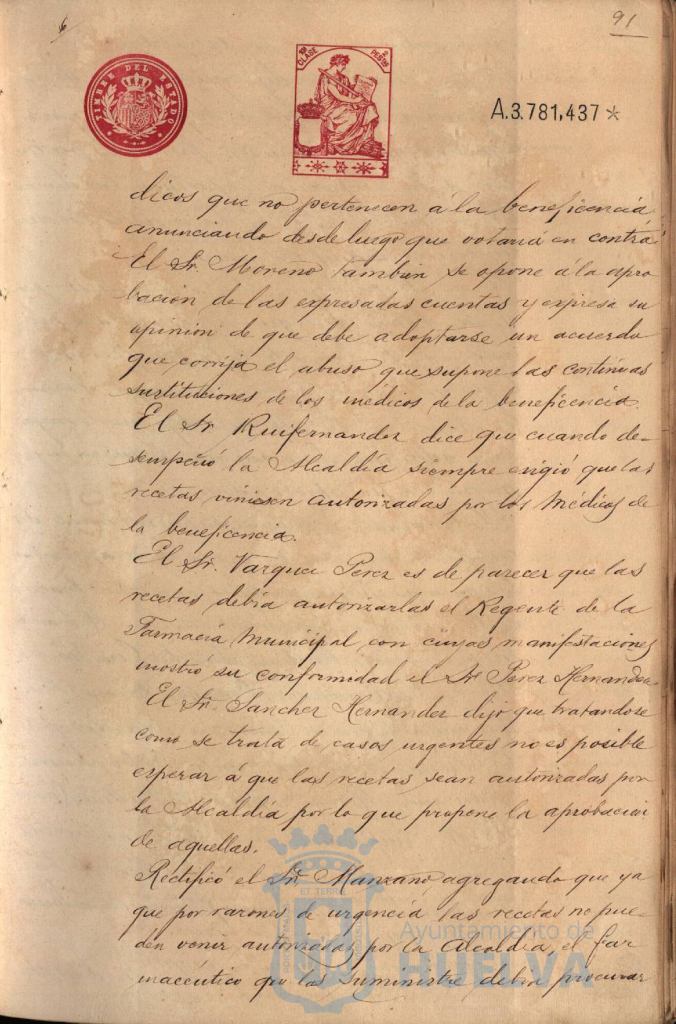 91
TIMBRE DEL ESTADO
10ª CLASE
2 PESTAS
A.3.781,437 *
dicos que no pertenecen á la beneficencia,
anunciando desde luego que votaria en contra.
El Sr. Moreno tambien se opone á la apro
bacion de las expresadas cuentas y expresa su
opinion de que debe adoptarse un acuerdo
que corrija el abuso que supone las continuas
sustituciones de los médicos de la beneficencia.
El Sr Ruifernandez dice que cuando de-
sempeñó la Alcaldía siempre exigió que las
recetas viniesen autorizadas por los Médicos de
la beneficencia.
El Sr. Vazquez Perez es de parecer que las
recetas debia autorizarlas el Regente de la
Farmacia Municipal, con cuyas manifestaciones
mostró su conformidad el Sr Perez Hernandez.
El Sr. Sanchez Hernandez dijo que tratandose
como se trata de casos urgentes no es posible
esperar á que las recetas sean autorizadas por
la Alcaldía por lo que propone la aprobacion
de aquellas.
Rectificó el Sr. Manzano, agregando que ya
que por razones de urgencia las recetas no pue-
den venir autorizadas por la Alcaldía, el far
maceútico que las suministre debia procurar
Ayuntamiento de
HUELVA